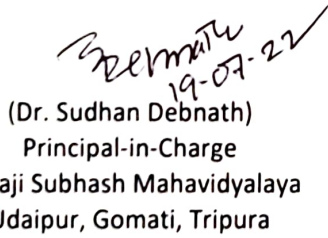 Debnath
19-07-22
(Dr. Sudhan Debnath)
Principal-in-Charge
aji Subhash Mahavidyalaya
Udaipur, Gomati, Tripura